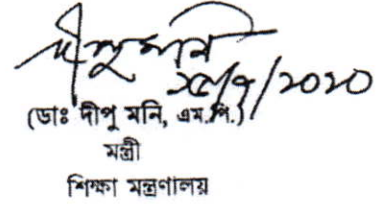 দীপু মনি
২৫/৭/২০২০
(ডাঃ দীপু মনি, এম.পি.)
মন্ত্রী
শিক্ষা মন্ত্রণালয়